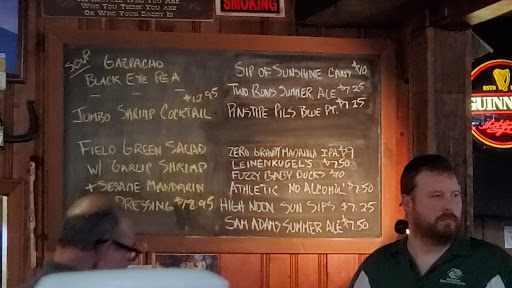 WHO YOU THINK YOU ARE
OR WHO YOUR DADDY IS
SMOKING
SOUP
GAZPACHO
BLACK EYE PEA
$12.95
JUMBO SHRIMP COCKTAIL
FIELD GREEN SALAD
W/ GARLIC SHRIMP
+ SESAME MANDARIN
DRESSING $18.95
SIP OF SUNSHINE CANS $10
TWO ROADS SUMMER ALE $7.25
PINSTIPE PILS BLUE PT. $7.25
ZERO GRAVITY IPA $9
LEINENKUGEL'S $7.50
FUZZY BABY DUCKS $10
ATHLETIC NO ALCOHOL $7.50
HIGH NOON SUN SIPS $7.25
SAM ADAMS SUMMER ALE $7.50
ESTD
GUINNESS